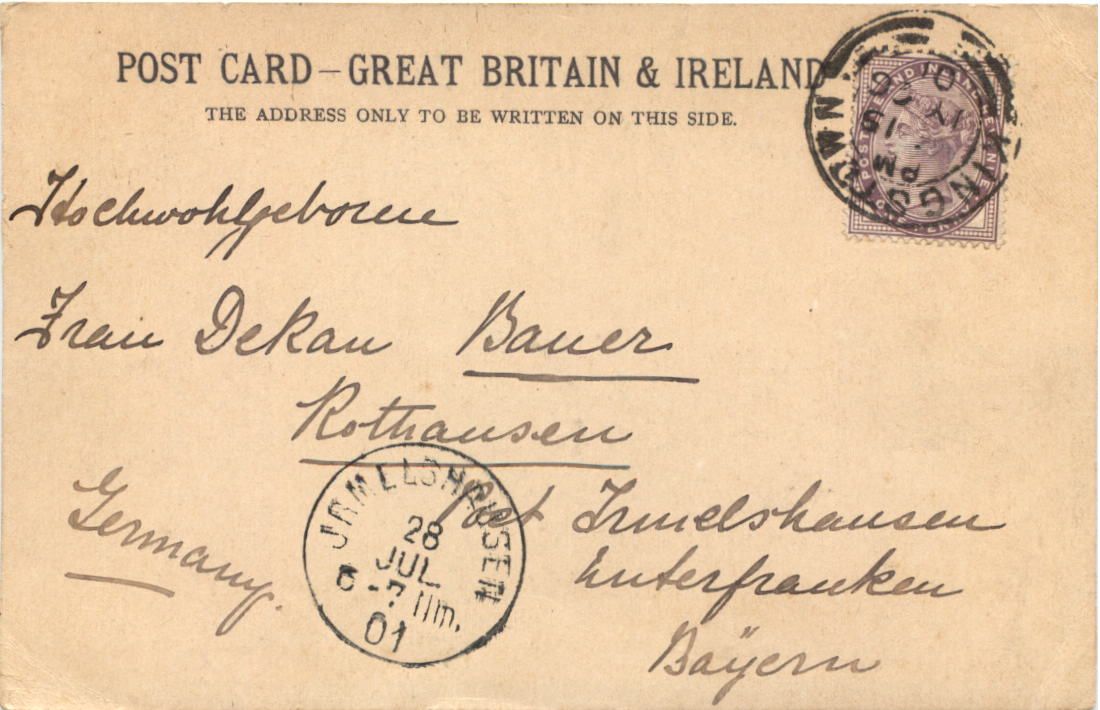 POST CARD – GREAT BRITAIN & IRELAND
THE ADDRESS ONLY TO BE WRITTEN ON THIS SIDE.
KINGSTOWN
PM
01
POSTAGE AND INLAND REVENUE
ONE PENNY
Hochwohlgeboren
Frau Dekan Bauer
Rothausen
Post Irmelshausen
Germany.
Unterfranken
Bayern
IRMELSHAUSEN
28
JUL
6-7 Nm.
01